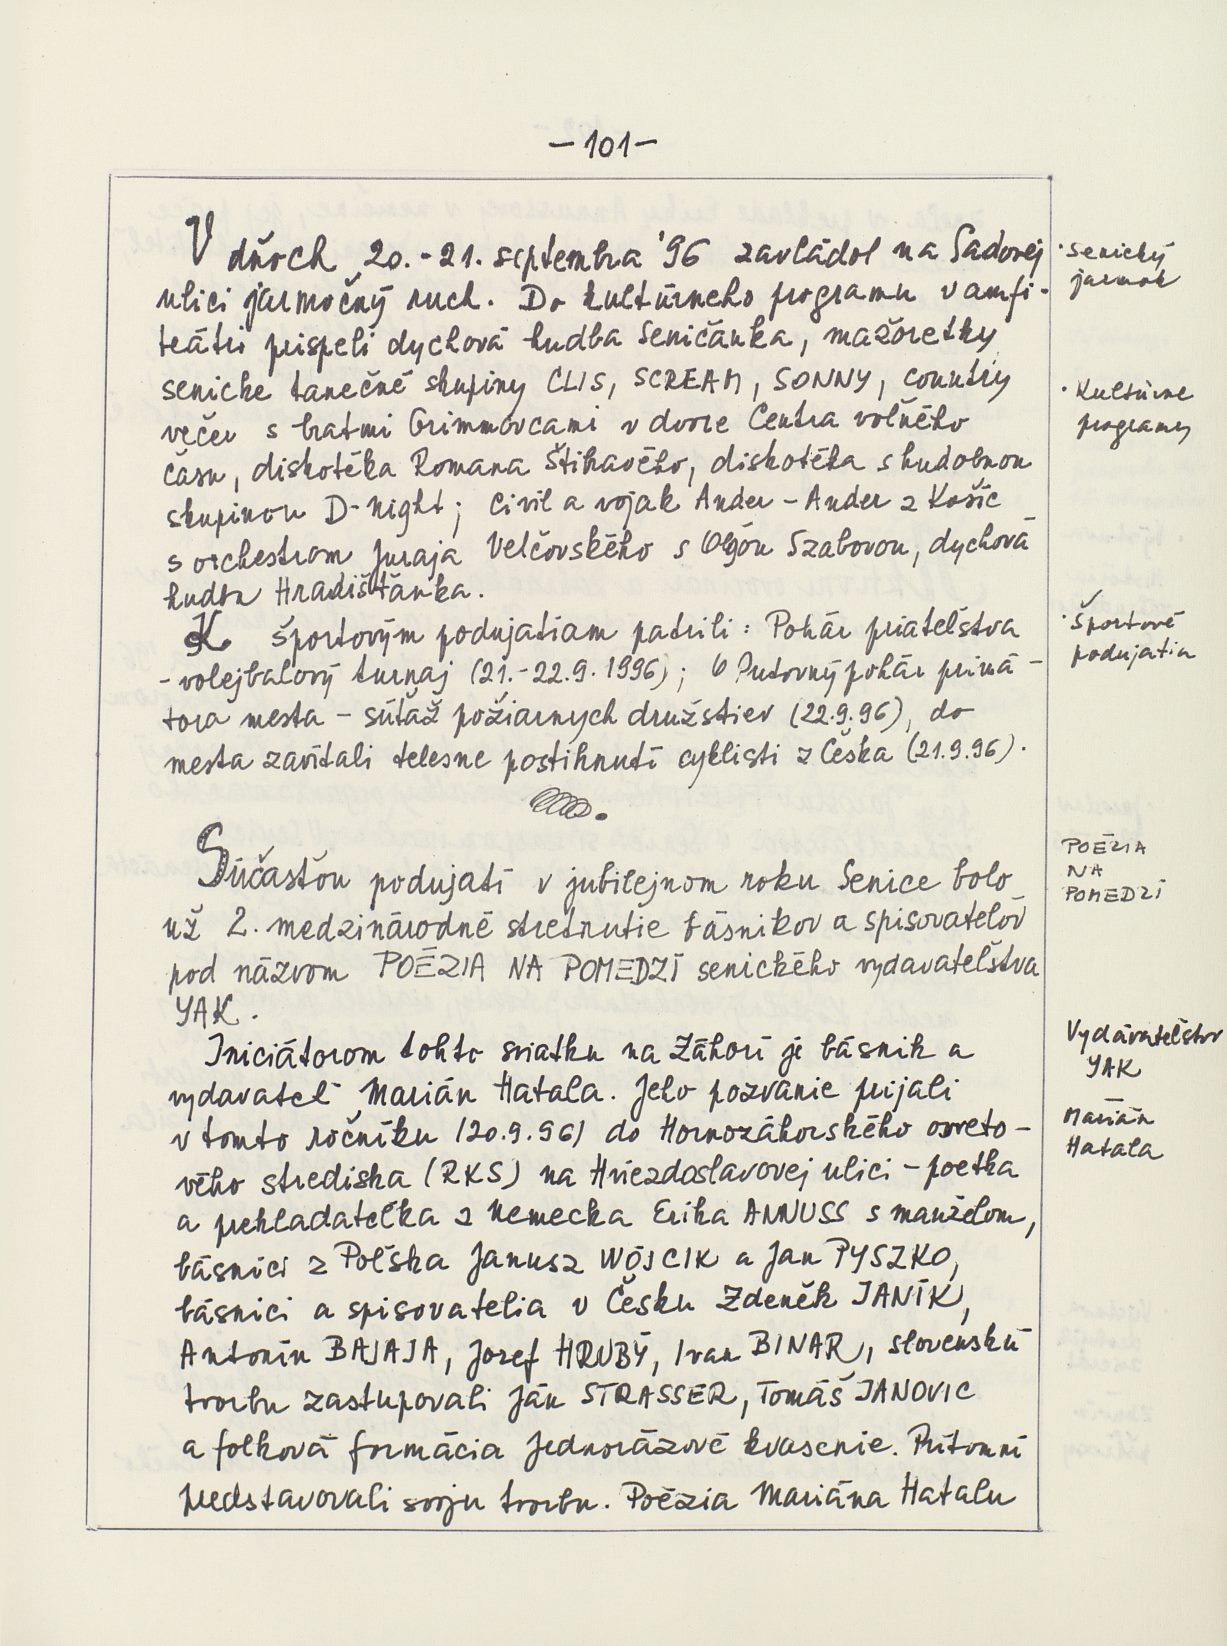 - 101 -
V dňoch 20. - 21. septembra '96 zavládol na Sadovej
ulici jarmočný ruch. Do kultúrneho programu v amfi-
teátri prispeli dychová hudba Seničánka, mažoretky
senické tanečné skupiny CLIS, SCREAM, SONNY, country
večer s bratmi Grimmovcami v dvore Centra voľného
času, diskotéka Romana Štihavého, diskotéka s hudobnou
skupinou D-Night; civil a vojak Ander - Ander z Košíc
s orchestrom Juraja Velčovského s Oľgou Szabovou, dychová
hudba Hradišťanka.
K športovým podujatiam patrili: Pohár priateľstva
- volejbalový turnaj (21. - 22.9.1996); Putovný pohár primá-
tora mesta - súťaž požiarnych družstiev (22.9.96), do
mesta zavítali telesne postihnutí cyklisti z Česka (21.9.96).
Súčasťou podujatí v jubilejnom roku Senice bolo
už 2. medzinárodné stretnutie básnikov a spisovateľov
pod názvom POÉZIA NA POMEDZÍ senického vydavateľstva
YAK.
Iniciátorom tohto sviatku na Záhorí je básnik a
vydavateľ Marián Hatala. Jeho pozvanie prijali
v tomto ročníku (20.9.96) do Hornozáhorského osveto-
vého strediska (RKS) na Hviezdoslavovej ulici - poetka
a prekladateľka z Nemecka Erika ANNUSS s manželom,
básnici z Poľska Janusz WÓJCIK a Jan PYSZKO,
básnici a spisovatelia v Česku Zdeněk JANÍK,
Antonín BAJAJA, Jozef HRUBÝ, Ivan BINAR, slovenskú
tvorbu zastupovali Ján ŠTRASSER, Tomáš JANOVIC
a folková formácia Jednorázové kvasenie. Prítomní
predstavovali svoju tvorbu. Poézia Mariána Hatalu
· Senický
jarmok
· Kultúrne
programy
· Športové
podujatia
POÉZIA
NA
POMEDZÍ
Vydavateľstvo
YAK
Marián
Hatala